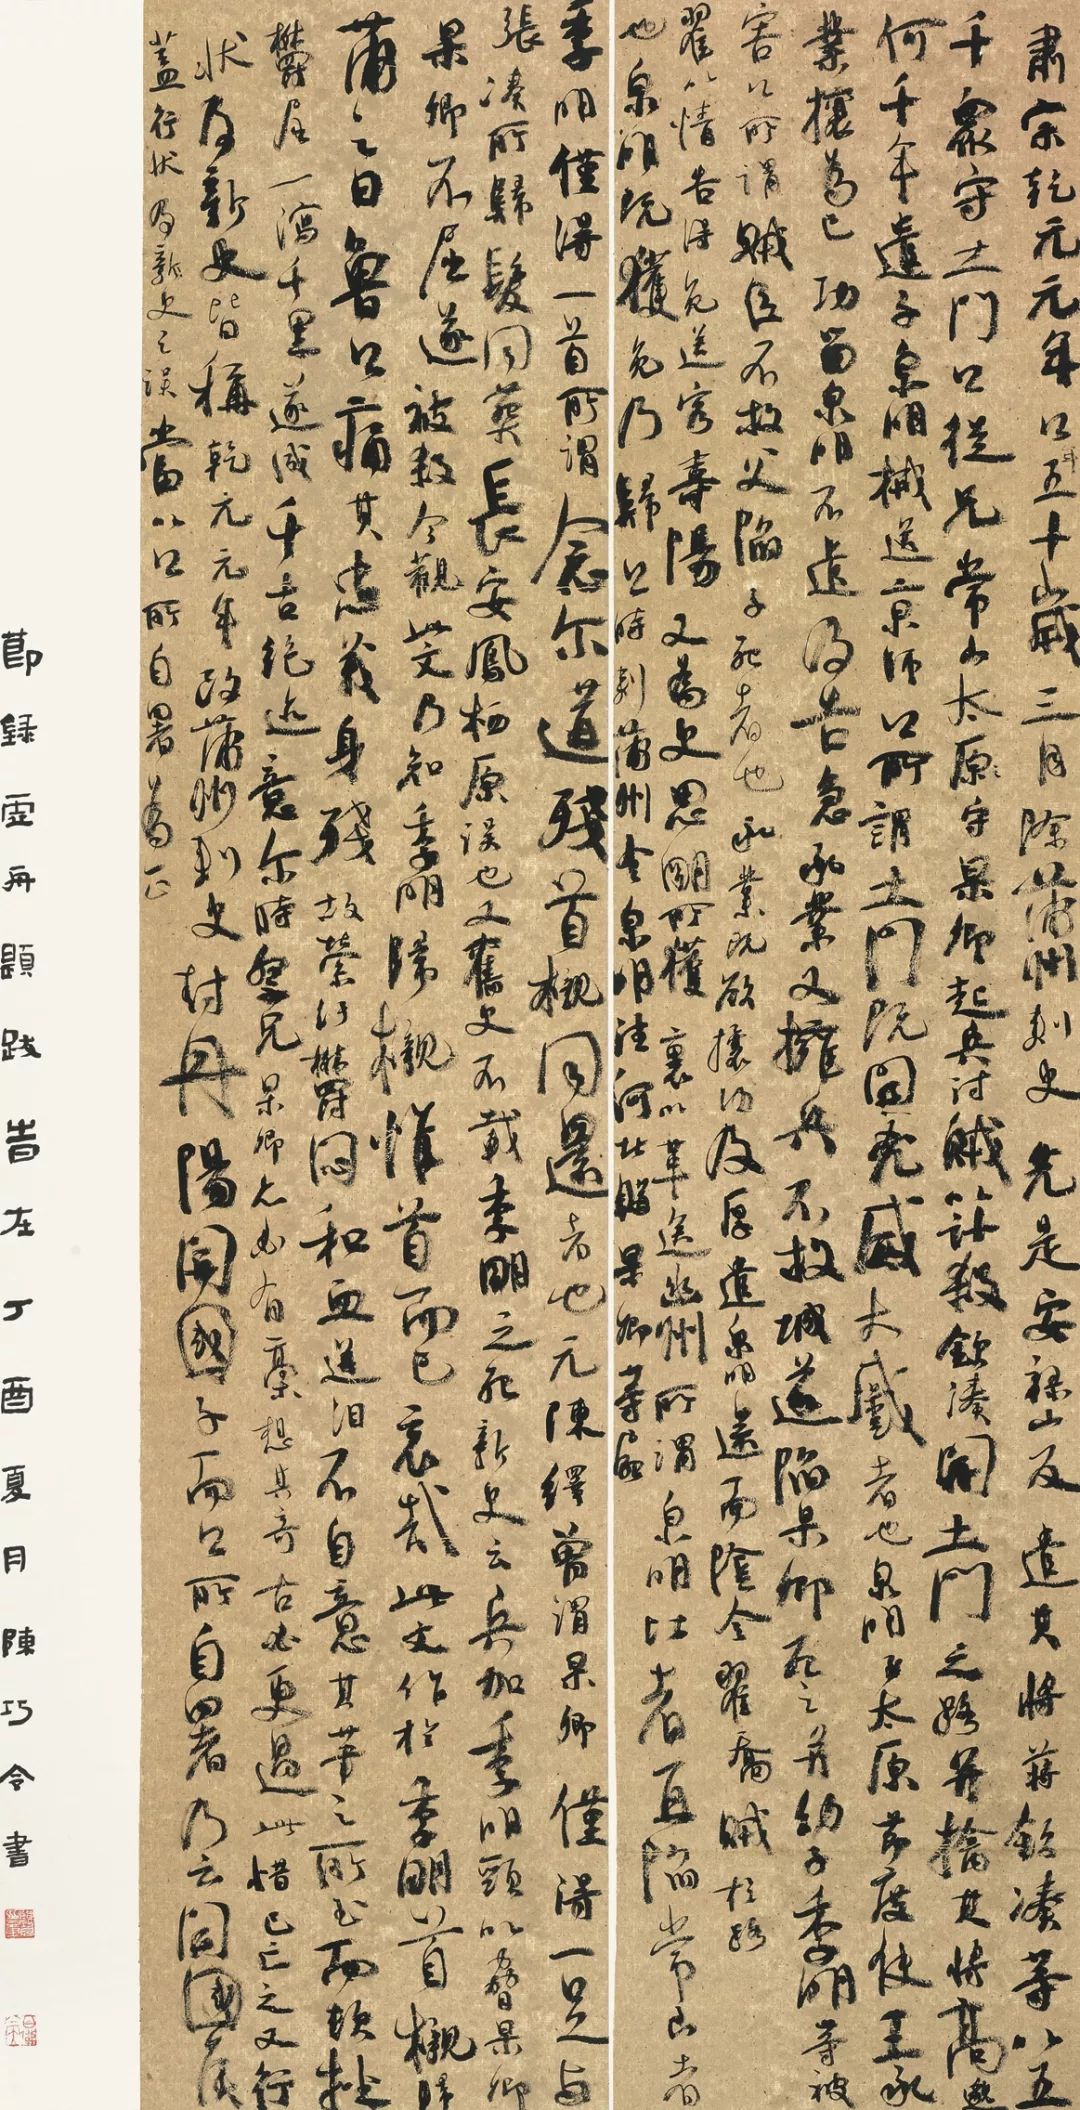 肅宗乾元元年公年五十山歲三月除蒲州刺史先是安祿山反遣其將蔣欽湊等以五
千眾守土門公從兄常山太原守杲卿起兵討賊以計殺欽湊開土門之路並擒其將高邈
何千年遣子泉明械送京師公所謂土門既開兇威大蹙者也泉明至太原節度使王承
業攘為己功留泉明不遣及告急承業又擁兵不救城遂陷杲卿死之并幼子季明等被
害公所謂賊臣不救父陷子死者也承業既欲攘功及厚遣泉明還而陰令翟喬賊於路
翟以情告得免送客壽陽又為史思明所獲裹以革送幽州所謂泉明比者再陷常山者
也泉明既獲免乃歸公時刺蒲州令泉明往河北購杲卿等屍
季明僅得一首所謂念爾遘殘首櫬同還者也元陳繹曾謂杲卿僅得一足與
張湊所歸髮同葬長安鳳栖原誤也又舊史不載季明之死新史云兵加季明頸以脅杲卿
杲卿不屈遂被殺今觀此文乃知季明歸櫬惟首而已哀哉此文作於季明首櫬歸
蒲之日魯公痛其忠義身殘故縈紆鬱悶和血迸淚不自意其筆之所至而頓挫
鬱屈一瀉千里遂成千古絕迹意爾時祭兄杲卿亦必有稾想其奇古必更過此惜已亡之又行
狀及新史皆稱乾元元年改蒲州刺史封丹陽開國子而公所自署乃云開國侯
蓋行狀及新史之誤當以公所自署為正
節錄虛舟題跋吉左丁酉夏月陳巧令書